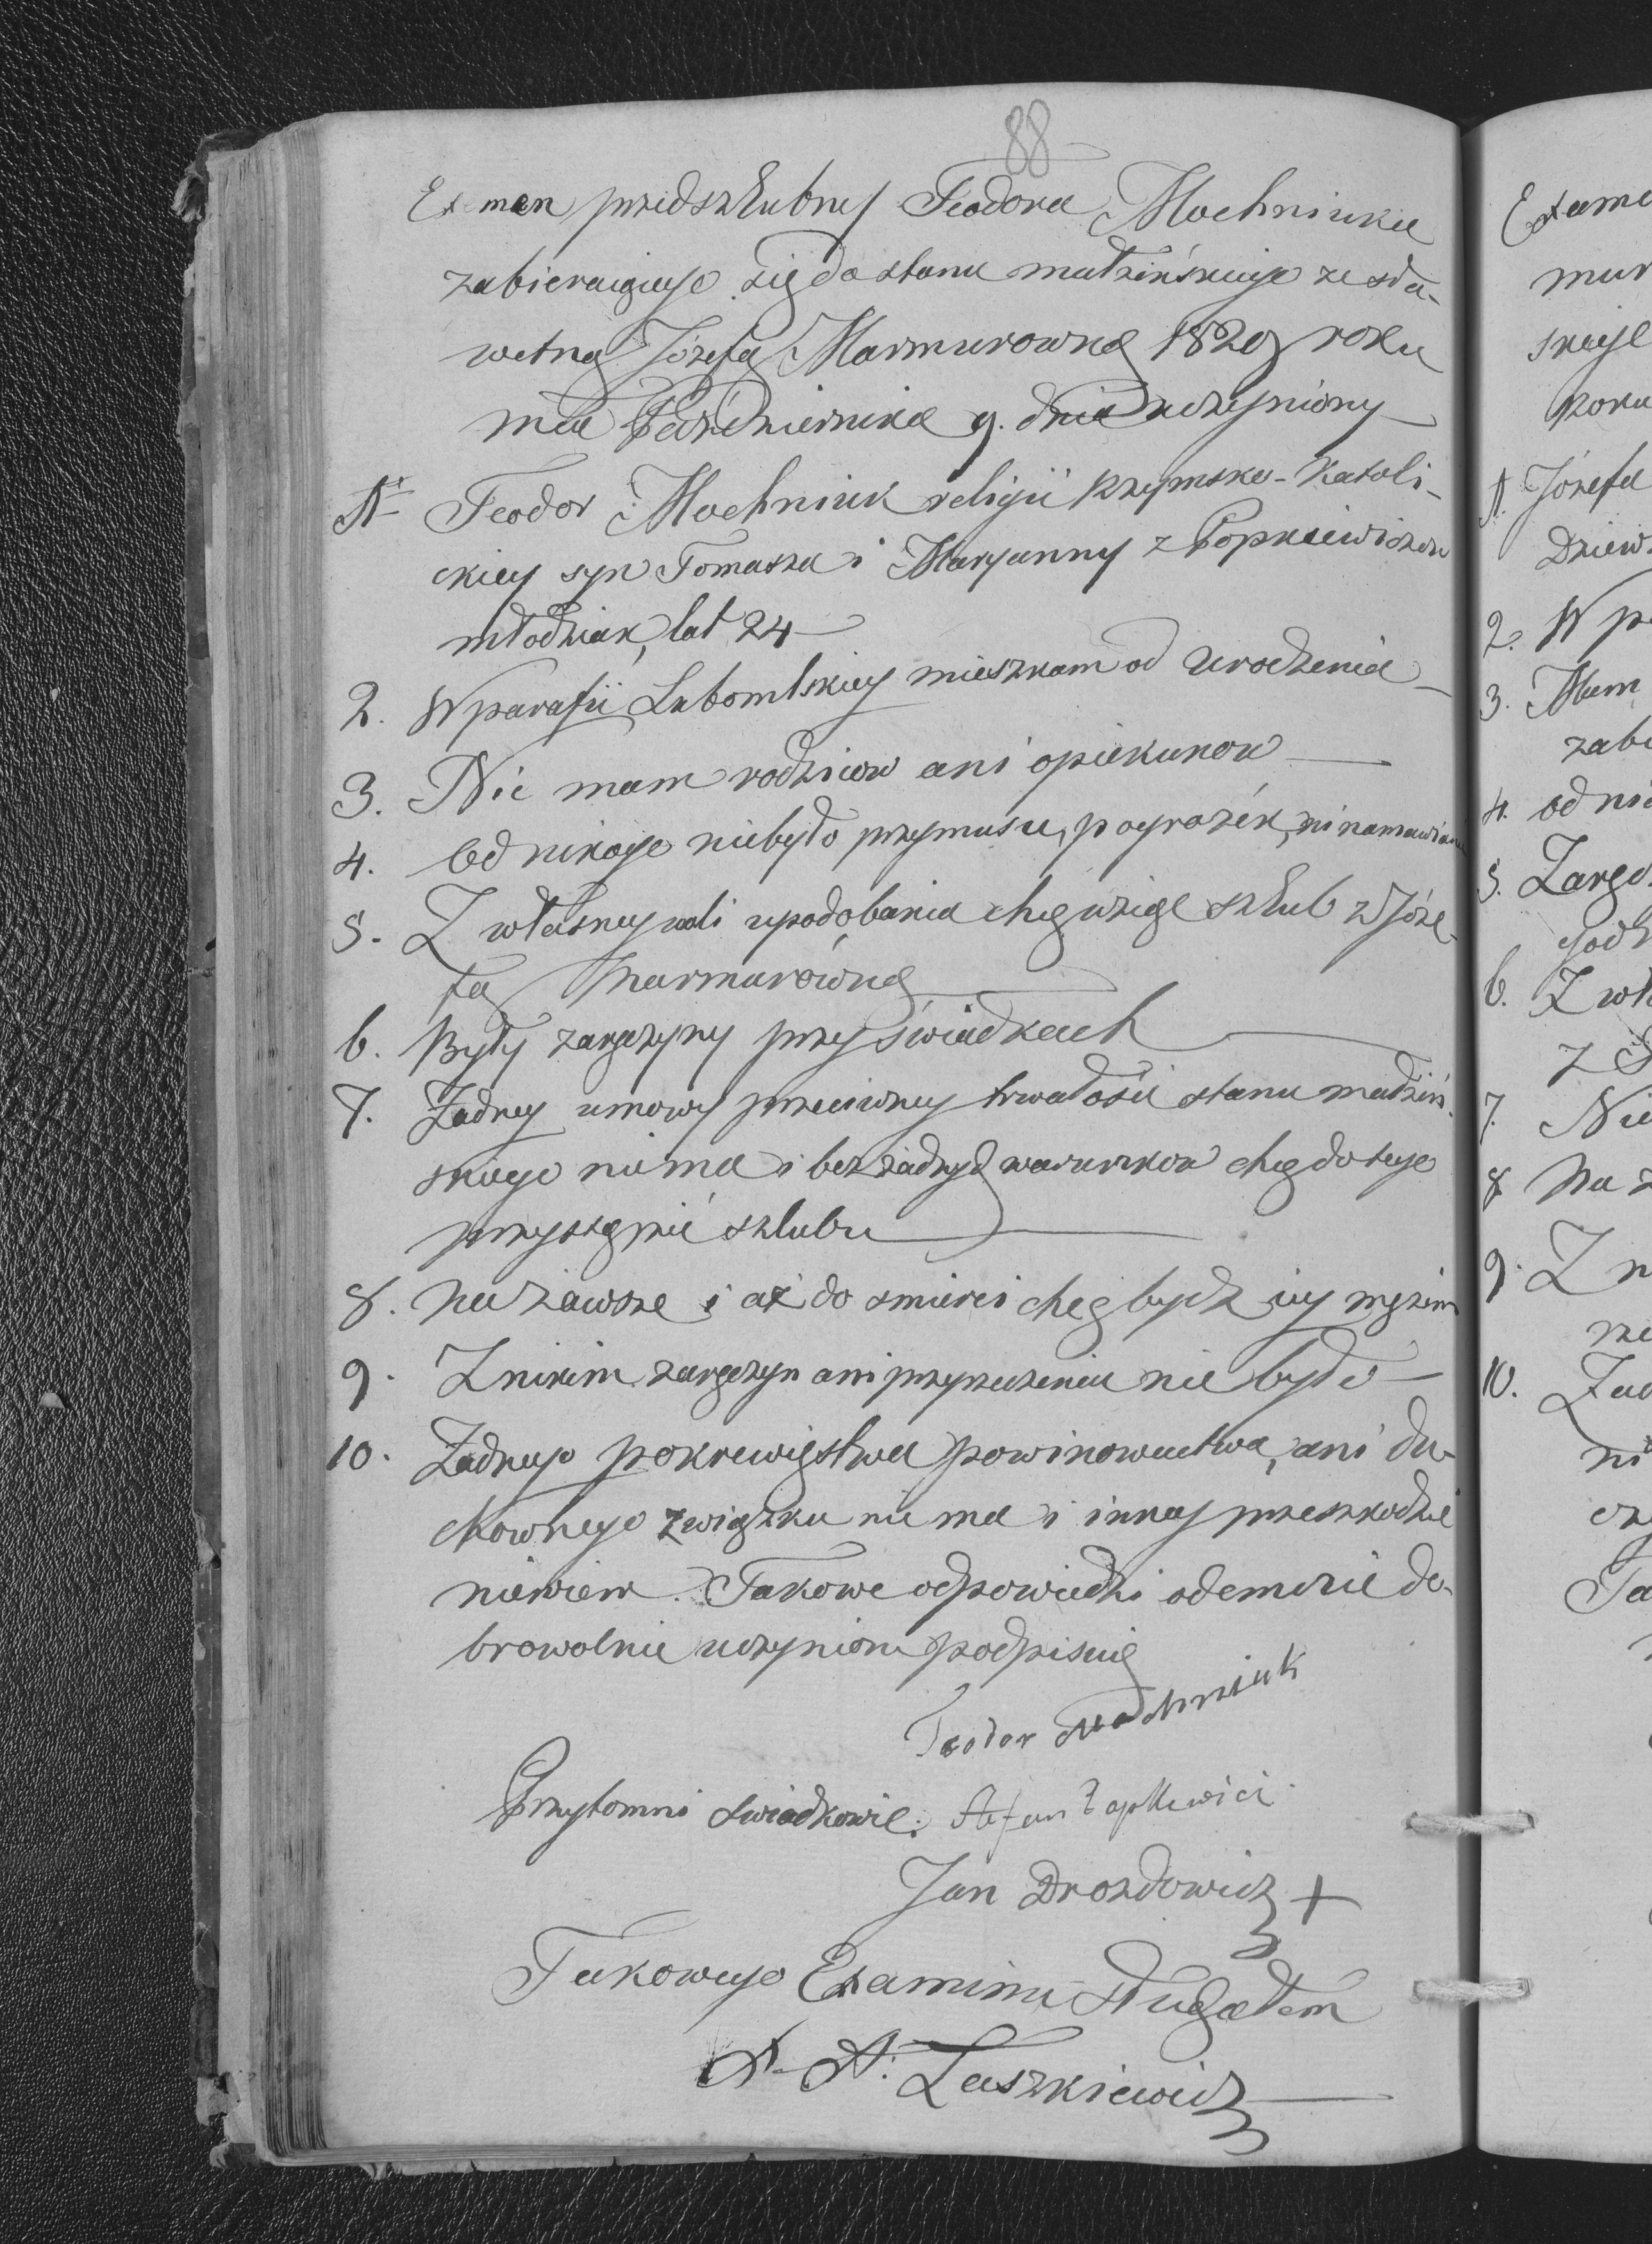 88
Examen przedszlubny Teodora Mochniuka
zabieraiącego się do stanu małżeńskiego ze sła-
wetną Józefą Marmurowną 1829 roku
mca Października 9. dnia uczyniony
1. Teodor Mochniuk religii Rzymsko-Katoli-
ckiey syn Tomasza i Maryanny z Popkiewiczow
młodzian, lat 24
2. W parafii Lubomlskiey mieszkam od urodzenia
3. Nie mam rodziców ani opiekunow
4. Od nikogo niebyło przymusu, pogrożek, ni namawiania
5. Z własney woli upodobania chcę wziąć szlub z Józe-
fą Marmurówną
6. Były zaręczyny przy świadkach
7. Żadney umowy przeciwney trwałości stanu małżeń-
skiego nie ma i bez żadnych warunkow chcę do tego
przystąpić szlubu
8. Na zawsze i aż do śmierci chcę bydź iey mężem
9. Z nikim zaręczyn ani przyrzeczenia nie było
10. Żadnego pokrewieństwa powinowactwa, ani du-
chownego związku nie ma i inney przeszkodzie
niewiem. Takowe odpowiedzi odemnie do-
browolnie uczynione podpisuię
Teodor Mochniuk
Przytomni świadkowie: Stefan Popkiewicz
Jan Drozdowicz +
Takowego Examinu słuchałem
X. A. Laszkiewicz
Exame
mur
skiege
Roku
1. Józefa
Dziew
2. W pa
3. Mam
zabi
4. od nie
5. Zarę
godz
6. Z wł
z
7. Nie
8 Na z
9. Z n
10. Żad
ni
Ta